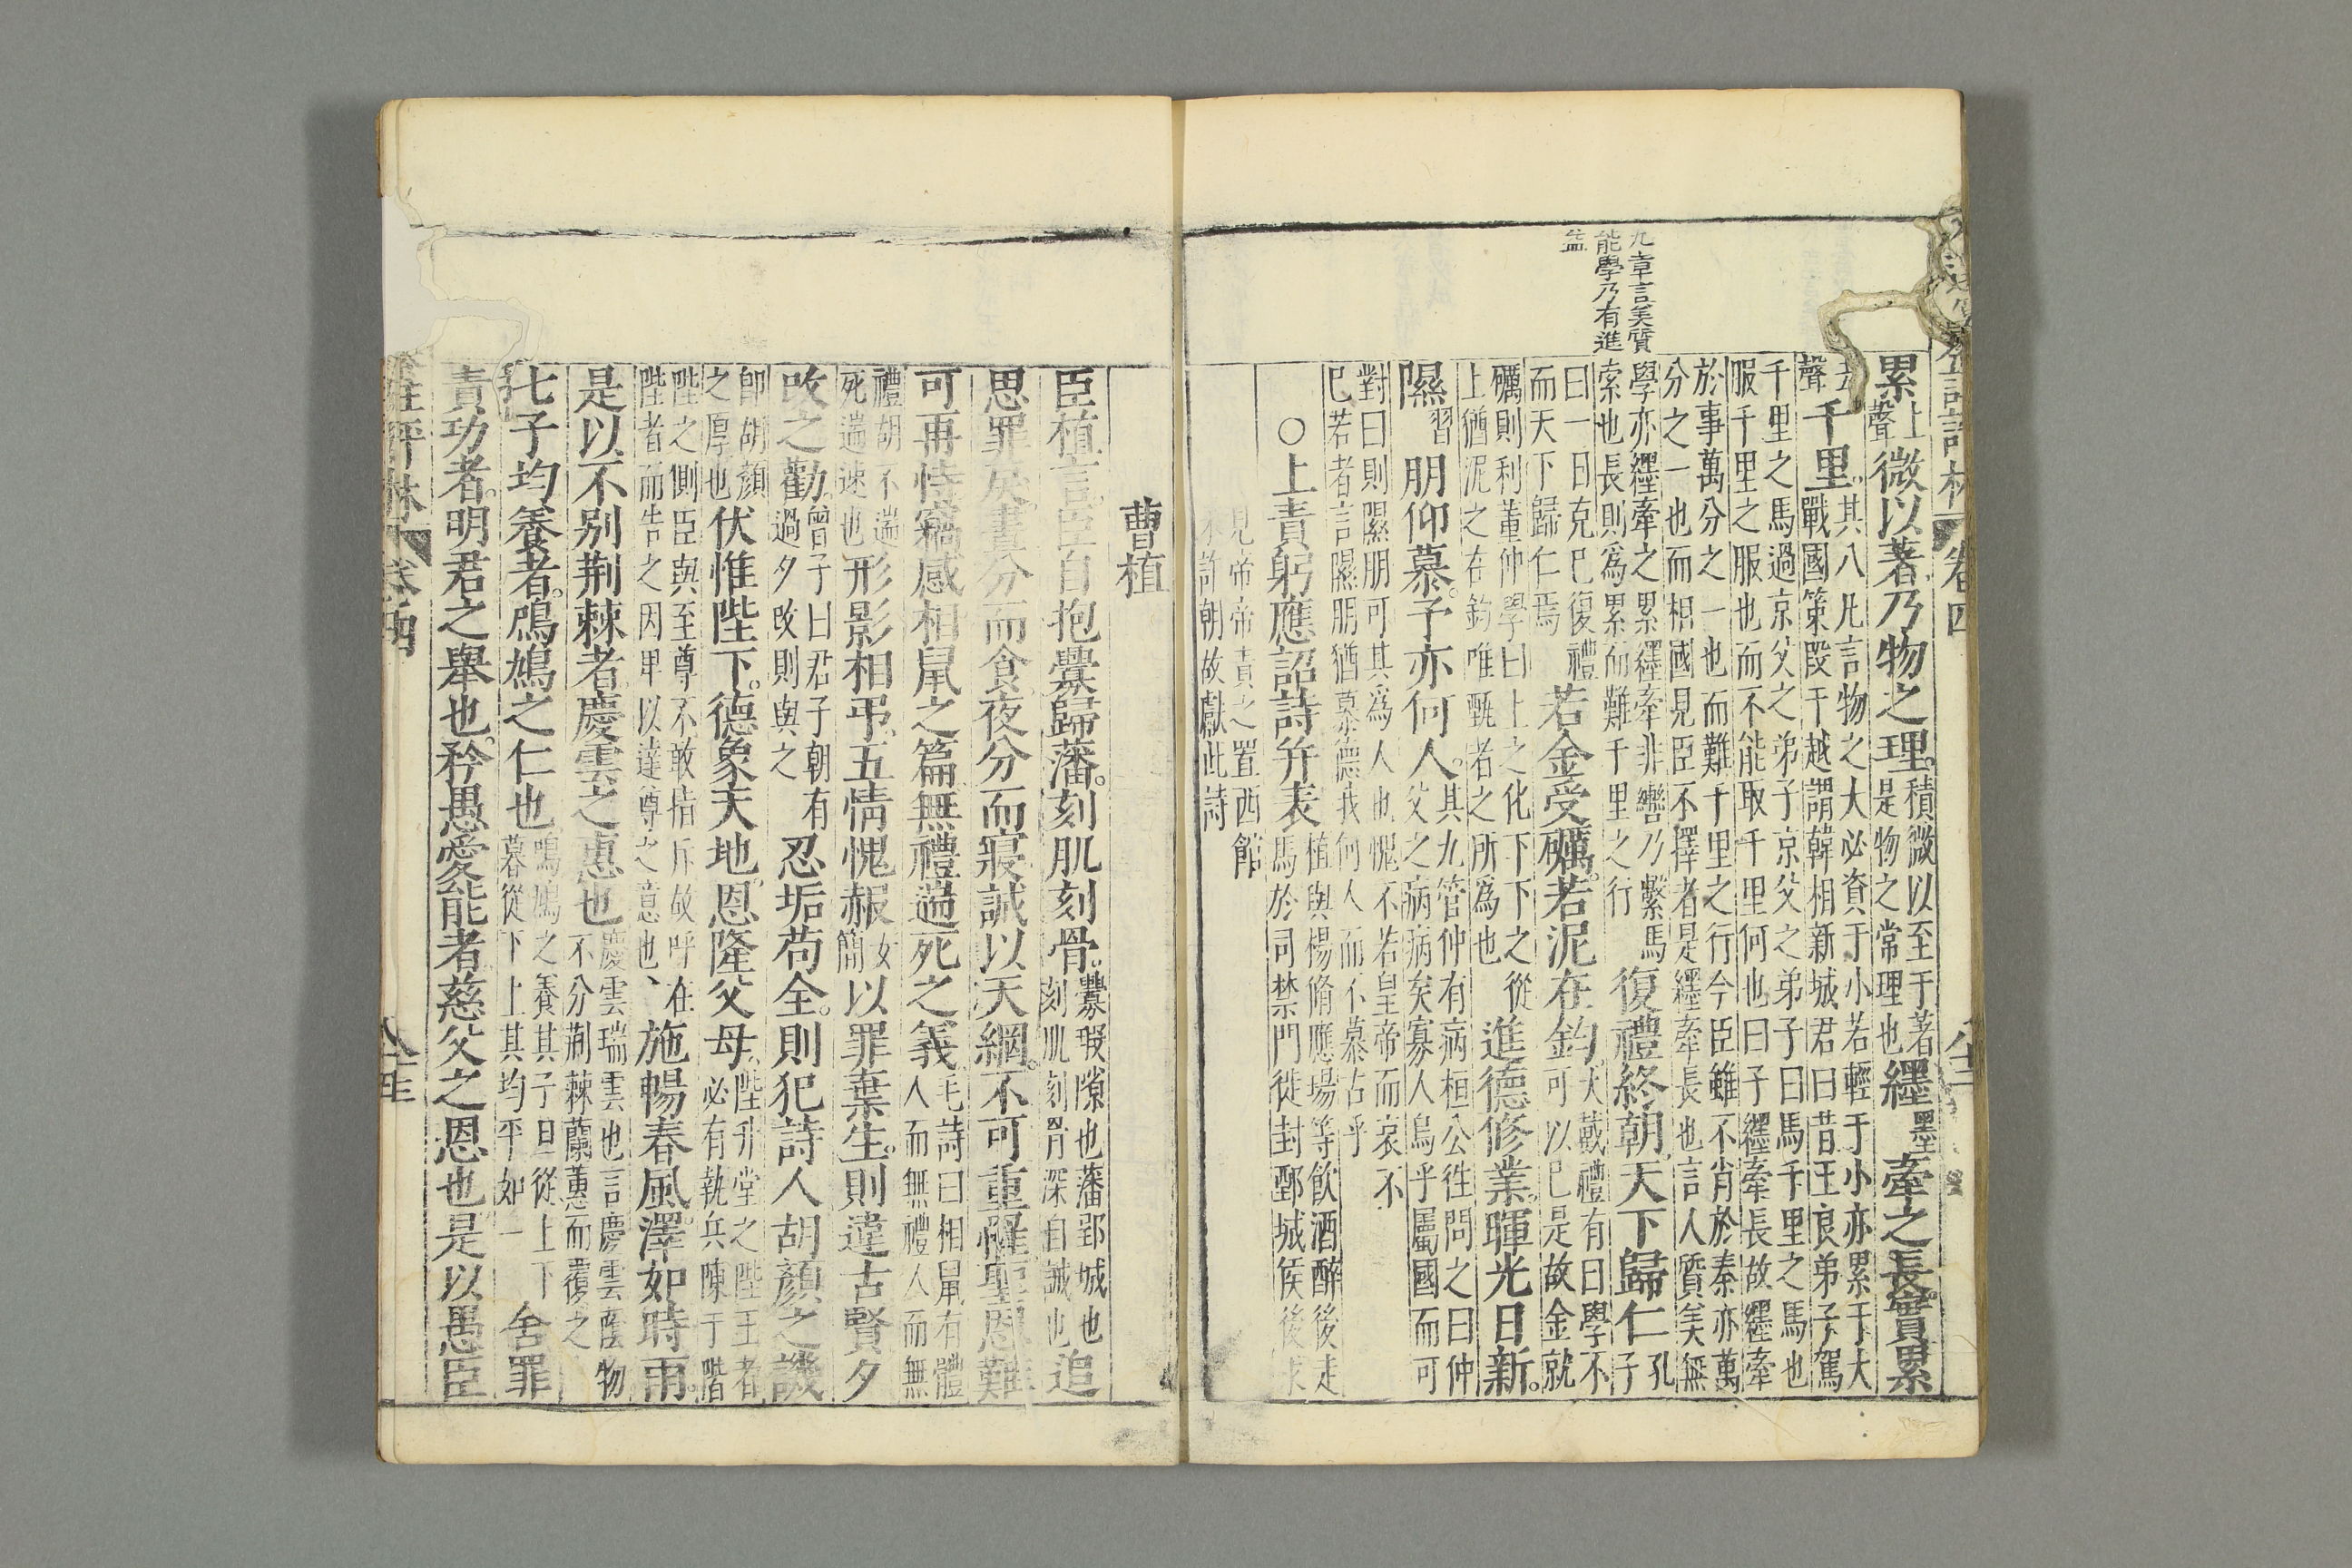 九章言美質
能學乃有進
益
累上聲微以著乃物之理。積微以至于著是物之常理也纆墨牽之長。實累
千里。其八凡言物之大必資于小若輕于小亦累于大
聲戰國策段干越謂韓相新城君曰昔王良弟子駕
千里之馬過京父之弟子京父之弟子曰馬千里之馬也
服千里之服也而不能取千里何也曰子纆牽長故纆牽
於事萬分之一也而難千里之行今臣雖不肖於秦亦萬
分之一也而相國見臣不擇者是纆牽長也言人質美無
學亦纆牽之累纆牽非轡乃繫馬
索也長則爲累而難千里之行
復禮終朝。天下歸仁孔子
曰一日克己復禮
而天下歸仁焉
若金受礪。若泥在鈞大戴禮有曰學不
可以已是故金就
礪則利董仲學曰上之化下下之從
上猶泥之在鈞唯甄者之所爲也
進德修業。暉光日新。
隰習朋仰慕。予亦何人。其九管仲有病桓公往問之曰仲
父之病病矣寡人烏乎屬國而可
對曰則隰朋可其爲人也愧不若皇帝而哀不
已若者言隰朋猶慕德我何人而不慕古乎
○上責躬應詔詩并表植與楊脩應場等飲酒醉後走
馬於司禁門徙封鄄城侯後求
見帝帝責之置西館
未許朝故獻此詩
卷四
曹植
臣植言臣自抱舋歸藩。刻肌刻骨。舋瑕隙也藩郢城也
刻肌刻骨深自誠也
追
思罪戾晝分而食夜分而寢誠以天網。不可重罹聖恩難
可再恃竊感相鼠之篇無禮遄死之義毛詩曰相鼠有體
人而無禮人而無
禮胡不遄
死遄速也
形影相弔。五情愧赧女
簡
以罪棄生。則違古賢夕
改之勸。曾子曰君子朝有
過夕改則與之
忍垢苟全。則犯詩人胡顏之譏
卽胡顏
之厚也
伏惟陛下。德象天地。恩隆父母。陛升堂之陛王者
必有執兵陳于階
陛之側臣與至尊不敢指斥故呼在
陛者而告之因卑以達尊之意也、
施暢春風。澤如時雨。
是以不別荆棘者。慶雲之惠也慶雲瑞雲也言慶雲蔭物
不分荆棘蘭蕙而覆之
七子均養者。鳲鳩之仁也鳲鳩之養其子旦從上下
暮從下上其均平如一
舍罪
責功者。明君之舉也。矜愚愛能者慈父之恩也是以愚臣